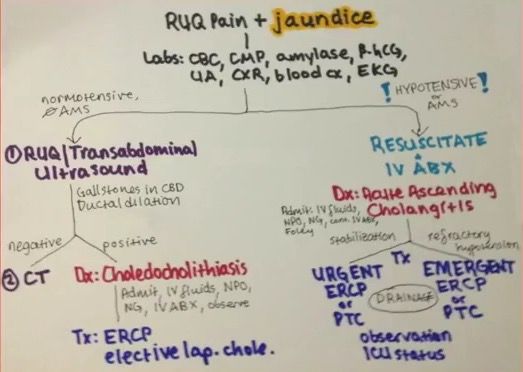 RUQ Pain + jaundice
Labs: CBC, CMP, amylase, B-hCG,
UA, CXR, blood cx, EKG
normotensive,
∅AMS
! HYPOTENSIVE !
or
AMS
① RUQ/Transabdominal
Ultrasound
Gallstones in CBD
Ductal dilation
negative
positive
② CT
Dx: Choledocholithiasis
Admit, IV fluids, NPO,
NG, IV ABX, observe
Tx: ERCP
elective lap. chole.
RESUSCITATE
&
IV ABX
Dx: Acute Ascending
Cholangitis
Admit: IV fluids,
NPO, NG, cont. IV ABX,
Foley
stabilization
Tx
refractory
hypotension
URGENT
ERCP
or
PTC
DRAINAGE
EMERGENT
ERCP
or
PTC
observation
ICU status